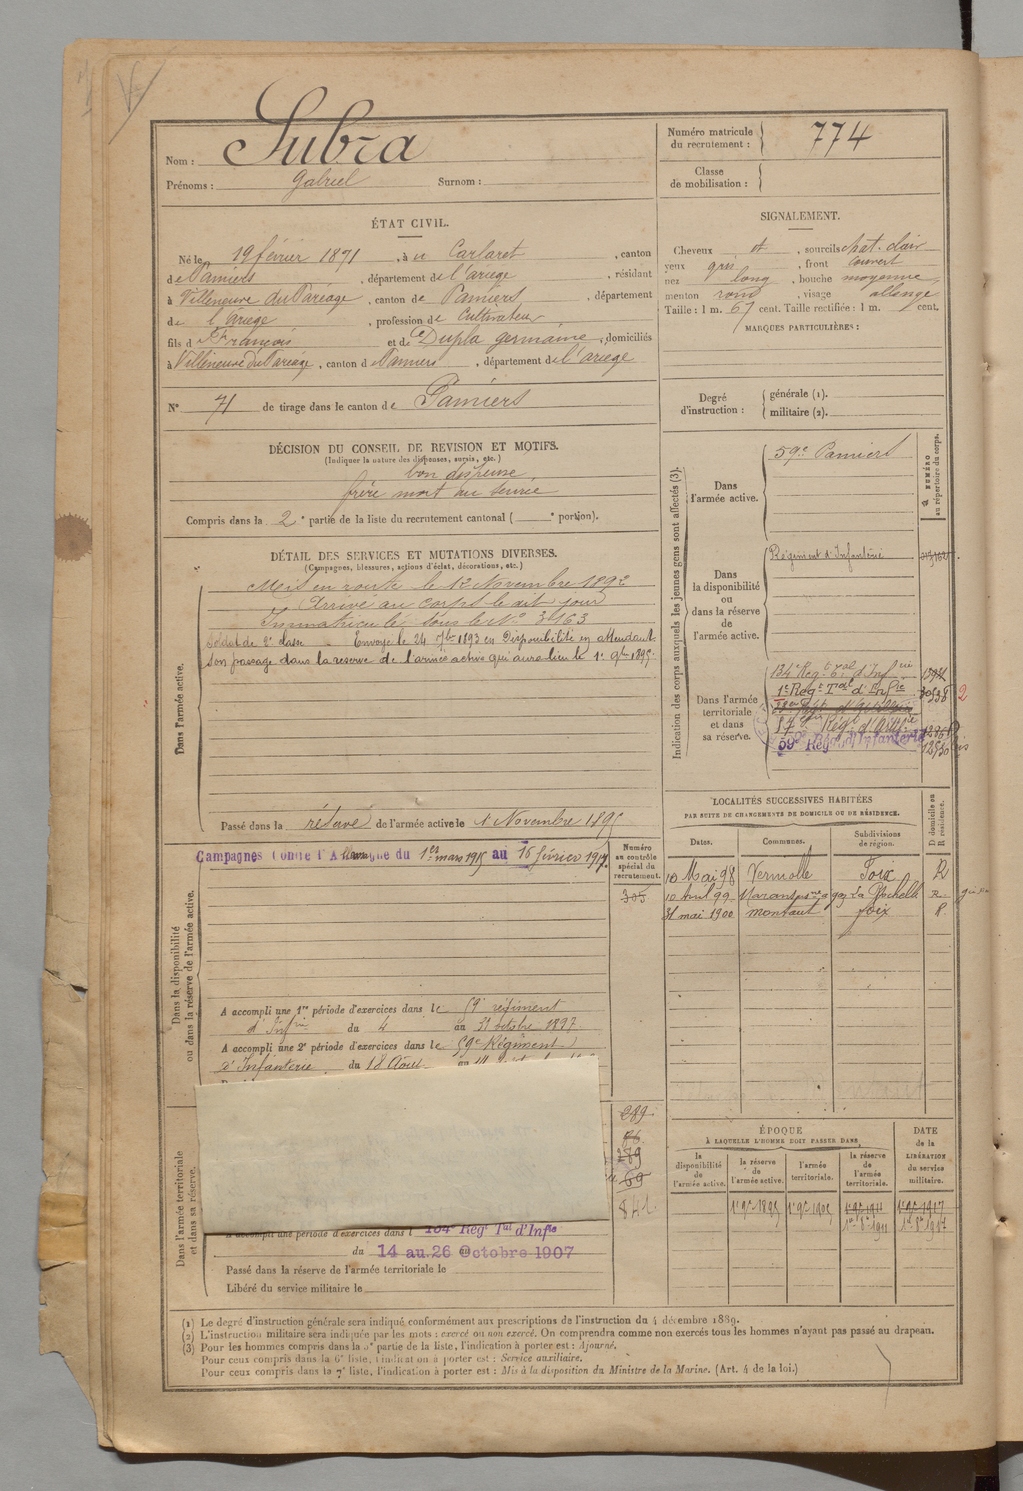 Nom : Subra
Prénoms : Gabriel Surnom :
Numéro matricule du recrutement : 774
Classe de mobilisation :
ÉTAT CIVIL.
Né le 19 février 1871, à u Carlaret, canton
de Pamiers, département de l'ariege, résidant
à Villeneuve du Pariage, canton de Pamiers, département
de l'ariege, profession de Cultivateur
fils d François et de Dupla germaine, domiciliés
à Villeneuve du Pariage, canton d Pamiers, département de l'ariege
SIGNALEMENT.
Cheveux et, sourcils chat. clair
yeux gris, front couvert
nez long, bouche moyenne
menton rond, visage allongé
Taille : 1 m. 67 cent. Taille rectifiée : 1 m. cent.
MARQUES PARTICULIÈRES :
N° 71 de tirage dans le canton de Pamiers
Degré d'instruction : générale (1).
militaire (2).
DÉCISION DU CONSEIL DE REVISION ET MOTIFS.
(Indiquer la nature des dispenses, sursis, etc.)
bon dispensé
frère mort au service
Compris dans la 2e partie de la liste du recrutement cantonal ( e portion).
DÉTAIL DES SERVICES ET MUTATIONS DIVERSES.
(Campagnes, blessures, actions d'éclat, décorations, etc.)
Dans l'armée active.
Mis en route le 12 Novembre 1892
Arrivé au corps le dit jour
Immatriculé sous le N° 3163
Soldat de 2e classe Envoyé le 24 7bre 1893 en Disponibilité en attendant
son passage dans la réserve de l'armée active qui aura lieu le 1er 9bre 1895.
Passé dans la réserve de l'armée active le 1 Novembre 1895
Dans la disponibilité ou dans la réserve de l'armée active.
Campagnes Contre l'Allemagne du 1er mars 1915 au 16 février 1917.
Numéro au contrôle spécial du recrutement.
305
A accompli une 1re période d'exercices dans le 59e régiment
d'Infrie du 4 au 31 octobre 1897
A accompli une 2e période d'exercices dans le 59e Régiment
d'Infanterie du 18 Août au
Dans l'armée territoriale et dans sa réserve.
289
86
289
69
841
A accompli une période d'exercices dans l 134e Régt Tal d'Infie
du 14 au 26 Octobre 1907
Passé dans la réserve de l'armée territoriale le
Libéré du service militaire le
Indication des corps auxquels les jeunes gens sont affectés (3).
NUMÉRO au répertoire du corps.
Dans l'armée active.
59e Pamiers
Dans la disponibilité ou dans la réserve de l'armée active.
Régiment d'Infanterie
Dans l'armée territoriale et dans sa réserve.
134e Régt Tal d'Infrie
1er Régt Tal d'Infie
57e Régt d'Artrie
59e Régt d'Infanterie
LOCALITÉS SUCCESSIVES HABITÉES
PAR SUITE DE CHANGEMENTS DE DOMICILE OU DE RÉSIDENCE.
Dates. Communes. Subdivisions de région. D domicile ou R résidence.
10 Mai 98 Verniolle Foix R
10 Avril 99 Marans La Rochelle R
31 mai 1900 montaut foix R
ÉPOQUE
À LAQUELLE L'HOMME DOIT PASSER DANS
la disponibilité de l'armée active. la réserve de l'armée active. l'armée territoriale. la réserve de l'armée territoriale.
DATE de la LIBÉRATION du service militaire.
1er 9bre 1895 1er 9bre 1905 1er 9bre 1911 1er 9bre 1917
(1) Le degré d'instruction générale sera indiqué conformément aux prescriptions de l'instruction du 4 décembre 1889.
(2) L'instruction militaire sera indiquée par les mots : exercé ou non exercé. On comprendra comme non exercés tous les hommes n'ayant pas passé au drapeau.
(3) Pour les hommes compris dans la 5e partie de la liste, l'indication à porter est : Ajourné.
Pour ceux compris dans la 6e liste, l'indication à porter est : Service auxiliaire.
Pour ceux compris dans la 7e liste, l'indication à porter est : Mis à la disposition du Ministre de la Marine. (Art. 4 de la loi.)